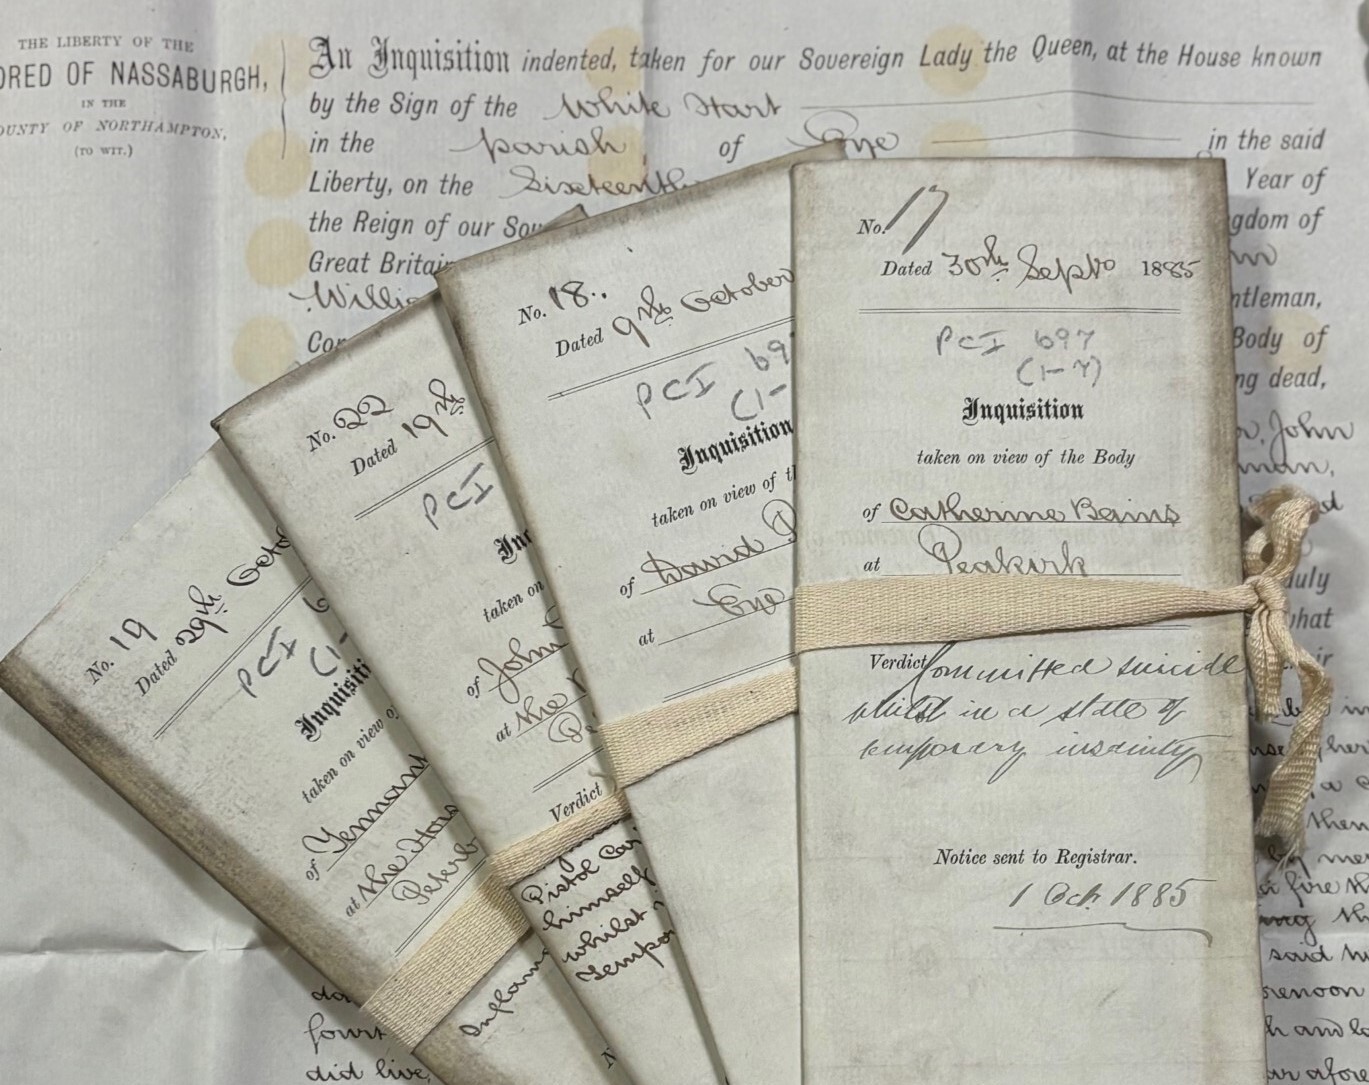 THE LIBERTY OF THE
DRED OF NASSABURGH,
IN THE
OUNTY OF NORTHAMPTON,
(TO WIT.)
An Inquisition indented, taken for our Sovereign Lady the Queen, at the House known
by the Sign of the White Hart
in the parish of Eye in the said
Liberty, on the Sixteenth Year of
the Reign of our Sov gdom of
Great Britain
Willia ntleman,
Cor Body of
ng dead,
John
man,
duly
what
No. 17
Dated 30th Sept 1885
PCI 697
(1-7)
Inquisition
taken on view of the Body
of Catherine Beins
at Peakirk
Verdict Committed suicide
whilst in a state of
temporary insanity
Notice sent to Registrar.
1 Oct. 1885
No. 18.
Dated 9th October
PCI 69
(1-
Inquisition
taken on view of th
of David
at Eye
No. 22
Dated 19th
PCI
Inq
taken on
of John
at the
Verdict
Pistol
himself
whilst
Tempo
No. 19
Dated 29th Octo
PCI 6
(1-
Inquisiti
taken on view of
of
at the Hous
Peterb
Inflam
fourt
did live,
then
fire th
said h
renoon
h and
afore